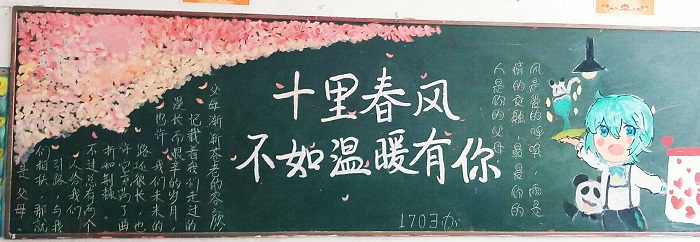 十里春风
不如温暖有你
1703办
风是爱的呼唤，雨是
情的交融，最爱你的
人是你的父母。
父母渐渐苍老的容颜
记载着我们走过的
漫长而艰辛的岁月，
也许我们未来的
路途很长，也
许它充满了曲
折和荆棘，
不过总有两个
人会给我们
引路，与我
们相扶，那就
是父母。